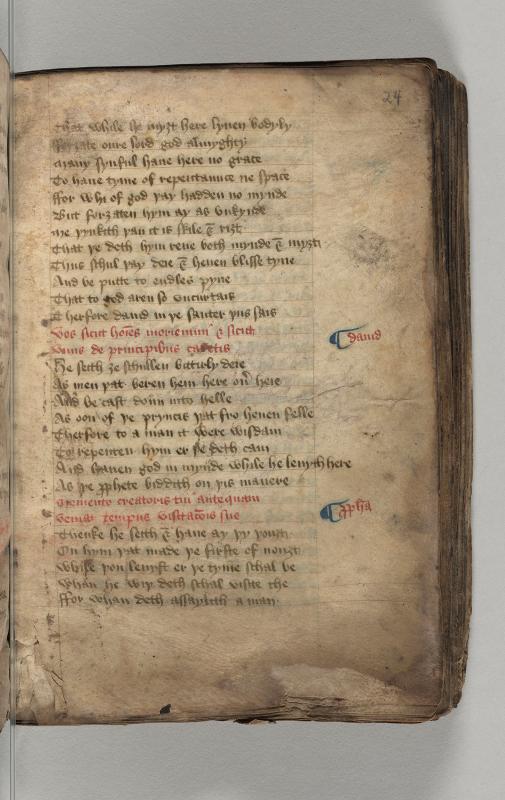 24
That while he myȝt here lyuen bodyly
fforȝate oure lord god almyghty
Many synful haue here no grace
To haue tyme of repentaunce ne space
ffor whi of god þay hadden no mynde
But forȝaten hym ay as vnkynde
me þynkith þan it is skile & riȝt
That þe deth hym reue both mynde & myȝt
Thus schul þay deie & heuen blisse tyne
And be putte to endles pyne
That to god aren so vncurtais
Therfore dauid in þe sauter þus sais
Vos sicut hoīes moriemini & sicut
vnus de principibus cadetis
dauid
He seith ȝe schullen bittirly deie
As men þat beren hem here on heie
And be cast doun into helle
As oon of þe pryncis þat fro heuen felle
Therfore to a man it were wisdam
To repenten hym er þe deth cam
And hauen god in mynde while he lenyth here
As þe ꝓphete biddith on þis manere
Memento creatoris tui antequam
veniat tempus visitacōis sue
ꝓpha
Thenke he seith & haue ay þy þouȝt
On hym þat made þe firste of nouȝt
While þou lenyst er þe tyme schal be
Whan he wiþ deth schal visite the
ffor whan deth assayleth a man